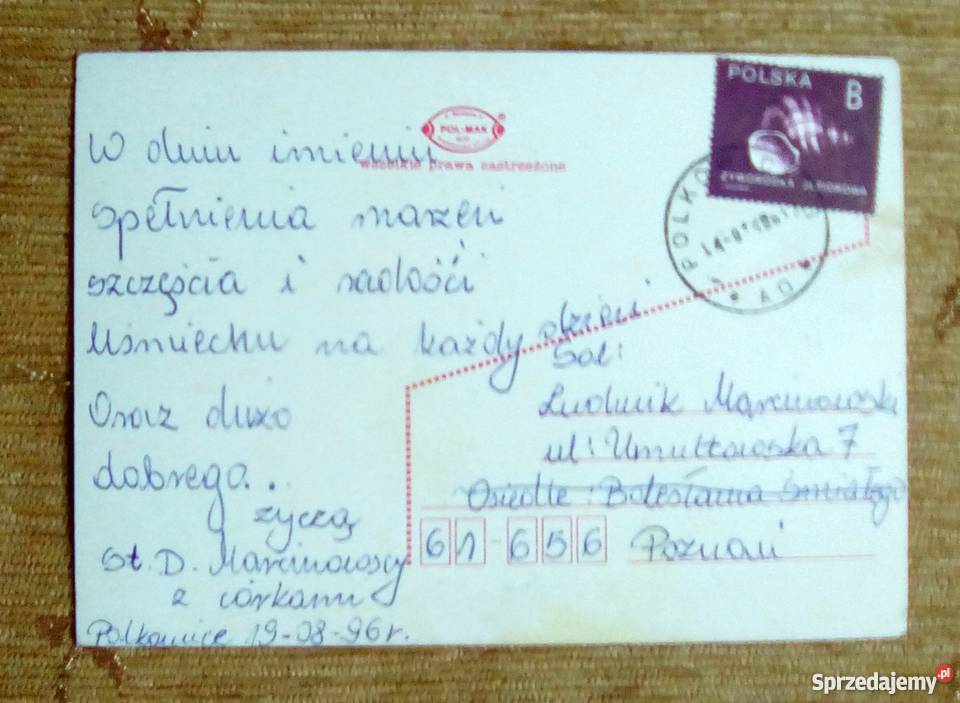 POL-MAK
wszelkie prawa zastrzeżone
POLSKA B
ŻYWORÓDKA JEZIOROWA
W dniu imienin
spełnienia marzeń
szczęścia i radości
Uśmiechu na każdy dzień
Oraz dużo
dobrego..
życzą
St. D. Marcinowscy
z córkami
Polkowice 19-08-96r.
Sol:
Ludwik Marcinowski
ul: Umultowska 7
Osiedle: Bolesława Śmiałego
61-656 Poznań
Sprzedajemy.pl